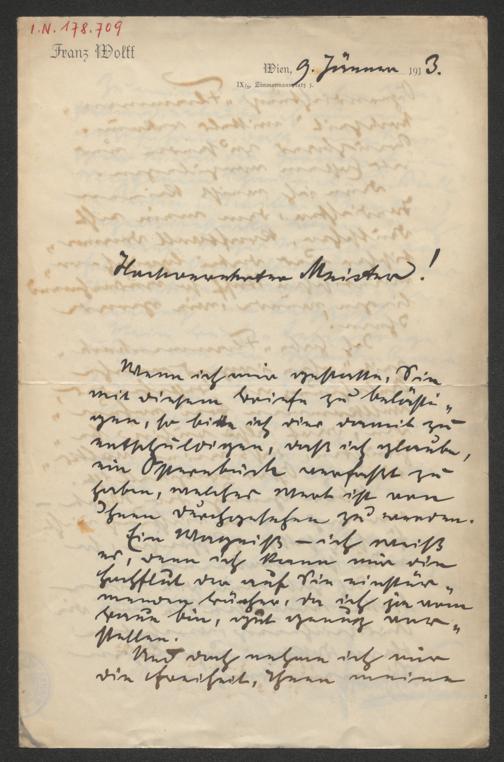 I.N. 178.709
Franz Wolff
Wien, 9. Jänner 1913.
IX/2, Zimmermannplatz 5.
Hochverehrter Meister!
Wenn ich mir gestatte, Sie
mit diesem Briefe zu belästi„
gen, so bitte ich dies damit zu
entschuldigen, daß ich glaube,
ein Opernbuch verfaßt zu
haben, welches wert ist von
Ihnen durchgesehen zu werden.
Ein Wagniß – ich weiß
es, denn ich kann mir die
Hochflut der auf Sie einstür„
menden Bücher, da ich ja vom
Baue bin, gut genug vor„
stellen.
Und doch nehme ich mir
die Freiheit, Ihnen meine